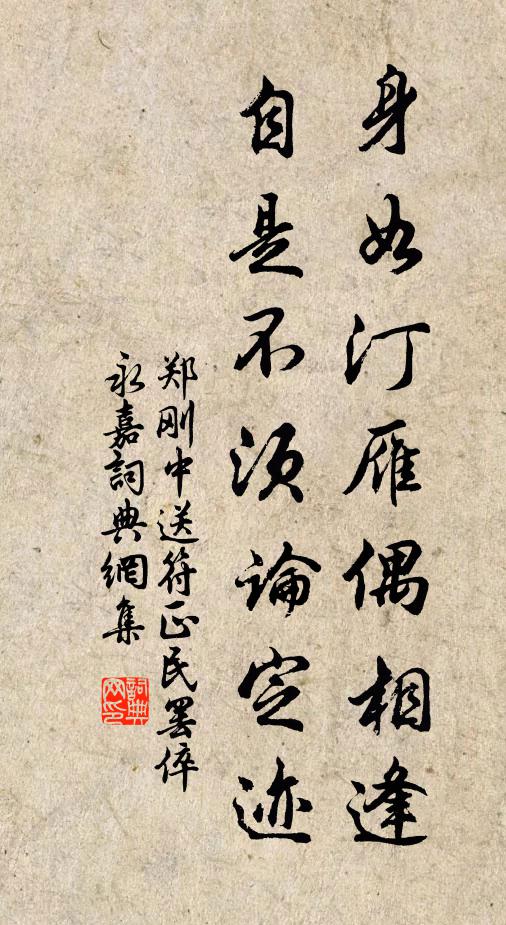 身如汀雁偶相逢
自是不须論定迹
郑刚中送符正民罢倅
永嘉詞典網集
詞典網印